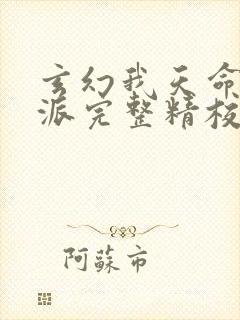 玄幻我天命
派完整精校
阿蘇市